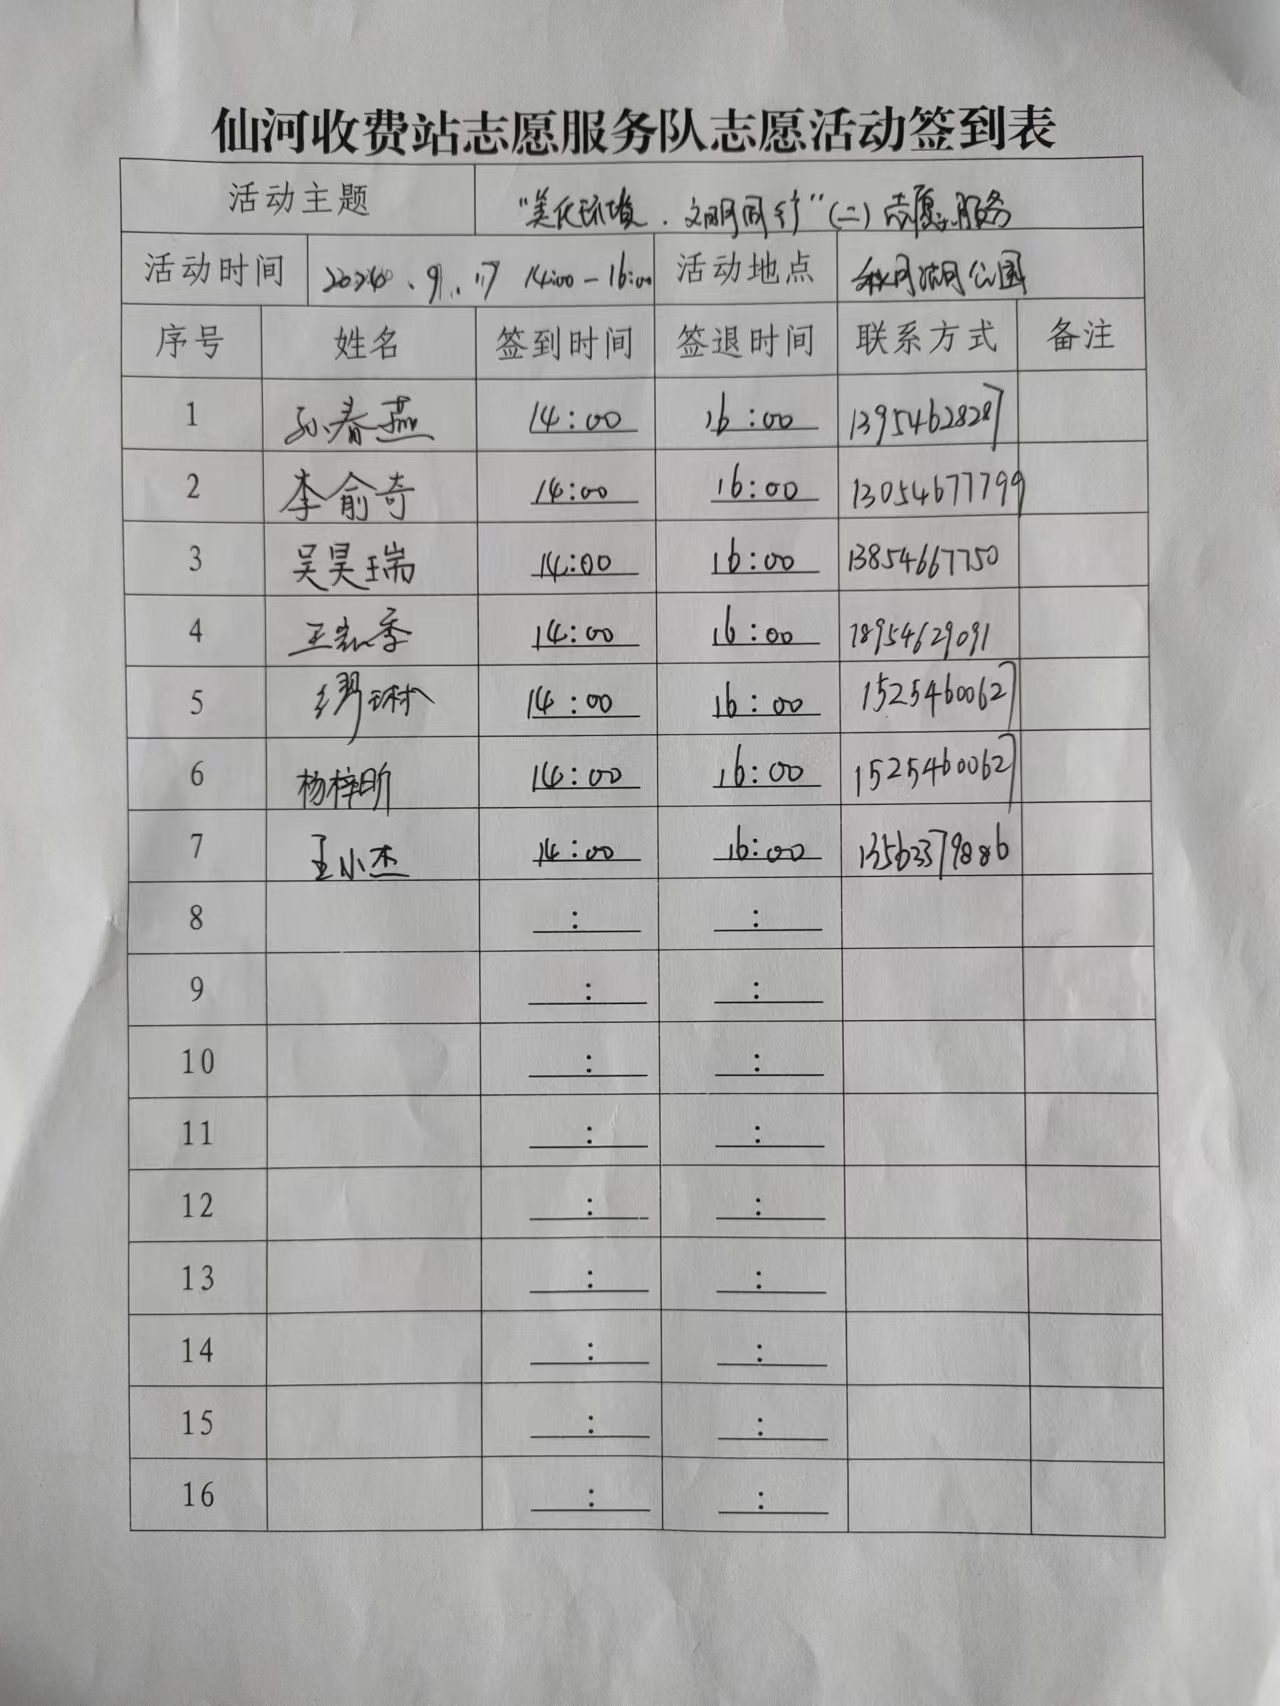 仙河收费站志愿服务队志愿活动签到表
活动主题 "美化环境．文明同行"(二)志愿服务
活动时间 9.17 14:00-16:00 活动地点 秋月湖公园
序号 姓名 签到时间 签退时间 联系方式 备注
1 孙春燕 14:00 16:00 13954628287
2 李俞奇 14:00 16:00 13054677799
3 吴昊瑞 14:00 16:00 13854667750
4 14:00 16:00 18954629091
5 缪琳 14:00 16:00 15254600627
6 杨梓昕 14:00 16:00 15254600627
7 王小杰 14:00 16:00 13563379886
8 : :
9 : :
10 : :
11 : :
12 : :
13 : :
14 : :
15 : :
16 : :